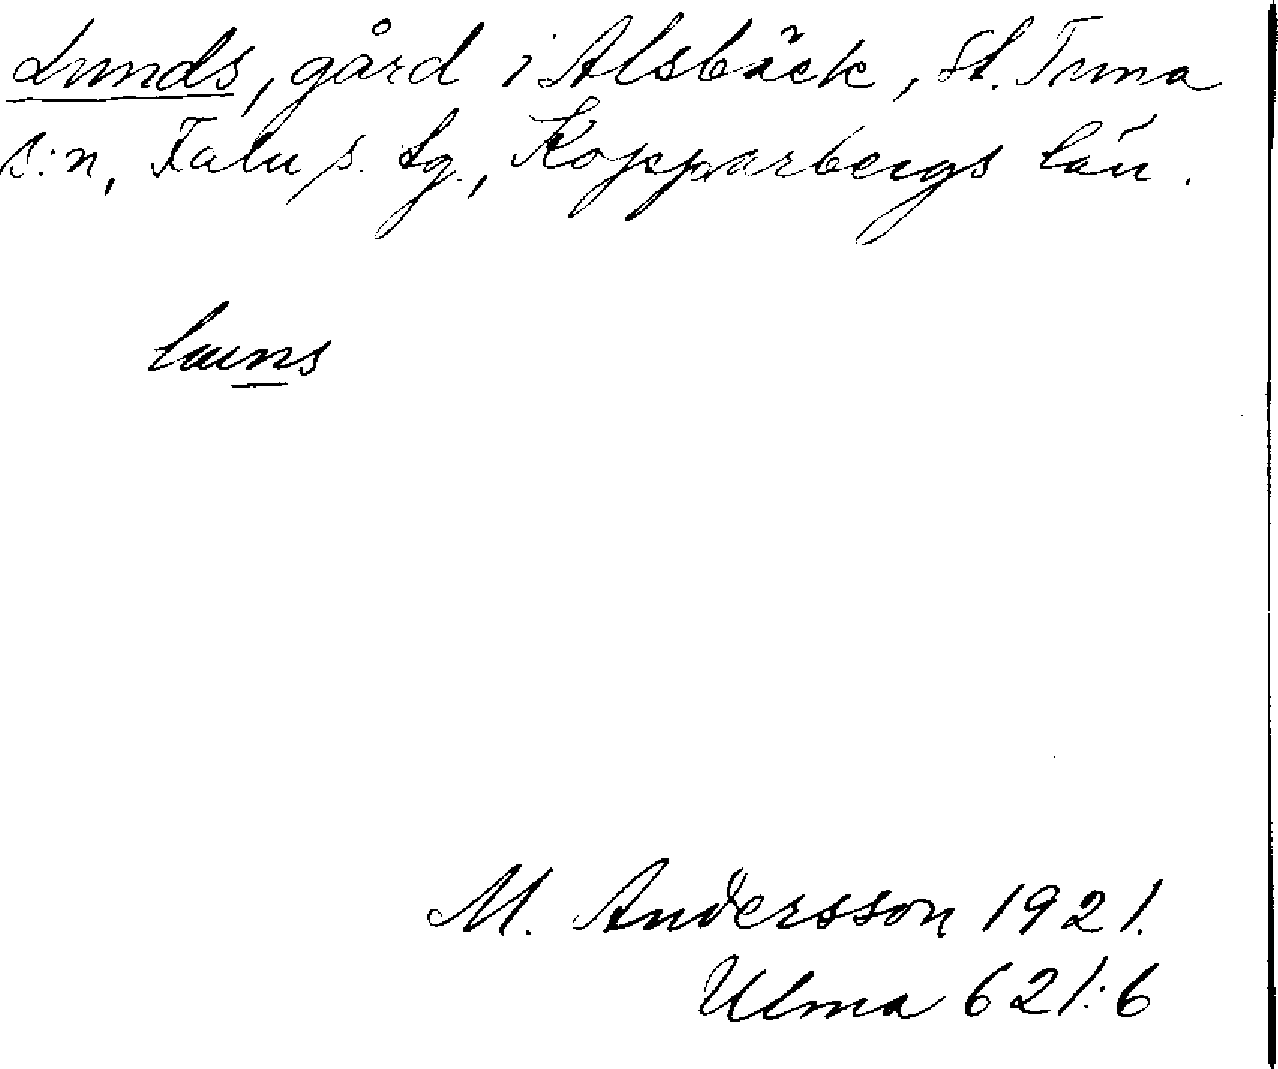 Lunds, gård i Alsbäck, St. Tuna
s:n, Falu s. tg., Kopparbergs län.
launs
M. Andersson 1921.
Ulma 621:6